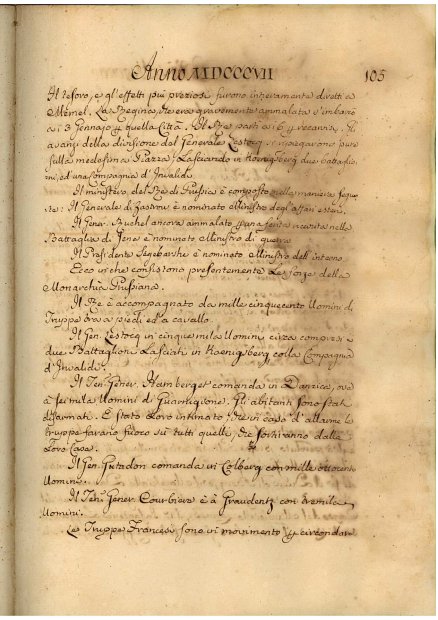 Anno MDCCCVII 105
Il tesoro, e gl'effetti più preziosi furono intieramente diretti a
Memel. La Regina, che era gravemente ammalata s'imbarcò
ai 3 Gennajo p quella Città. Il Re partì ai 6 p recarvisi. Gli
avanzi della divisione del Generale Lestocq si ripiegarono pure
sulla medesima Piazza, lasciando in Koenigsberg due battaglio-
ni, ed una Compagnia d'Invalidi.
Il ministero del Re di Prusia è composto nella maniera seque-
te: Il Generale di Zastrou è nominato Ministro degl'affari esteri.
Il Gener. Ruchel ancora ammalato p una ferita ricevuta nella
Battaglia di Jena è nominato Ministro di guerra
Il Presidente è nominato Ministro dell'interno
Ecco in che consistono presentemente le forze della
Monarchia Prusiana.
Il Re è accompagnato da mille cinquecento Uomini di
Truppe tra a piedi ed a cavallo.
Il Gen. Lestocq in cinque mila Uomini circa compresi i
due Battaglioni lasciati in Koenigsberg colla Compagnia
d'Invalidi.
Il Ten. Gener. Hamberget comanda in Danzica, ove
à sei mila Uomini di Guarnigione. Gli abitanti sono stati
disarmati. È stato loro intimato, che in caso d'allarme le
truppe farano fuoco su tutti quelli, che sortiranno dalle
loro Case.
Il Gen. Gutadon comanda in Colberg con mille ottocento
Uomini.
Il Ten. Gener. Courbiere è à Graudentz con tre mila
Uomini.
Le Truppe Francesi sono in movimento p circondare